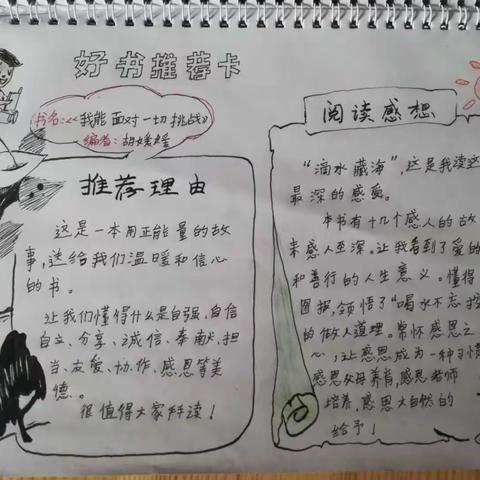 好书推荐卡
书名:《我能面对一切挑战》
编者:胡媛媛
推荐理由
这是一本用正能量的故
事,送给我们温暖和信心
的书。
让我们懂得什么是自强、自信
自立、分享、诚信、奉献、担
当、友爱、协作、感恩等美
德。
很值得大家拜读!
阅读感想
“滴水藏海”,这是我读这
最深的感受。
本书有十几个感人的故
来感人至深。让我看到了爱的
和善行的人生意义。懂得
图报,领悟了“喝水不忘挖
的做人道理。常怀感恩之
心,让感恩成为一种习惯
感恩父母养育,感恩老师
培养,感恩大自然的
给予!